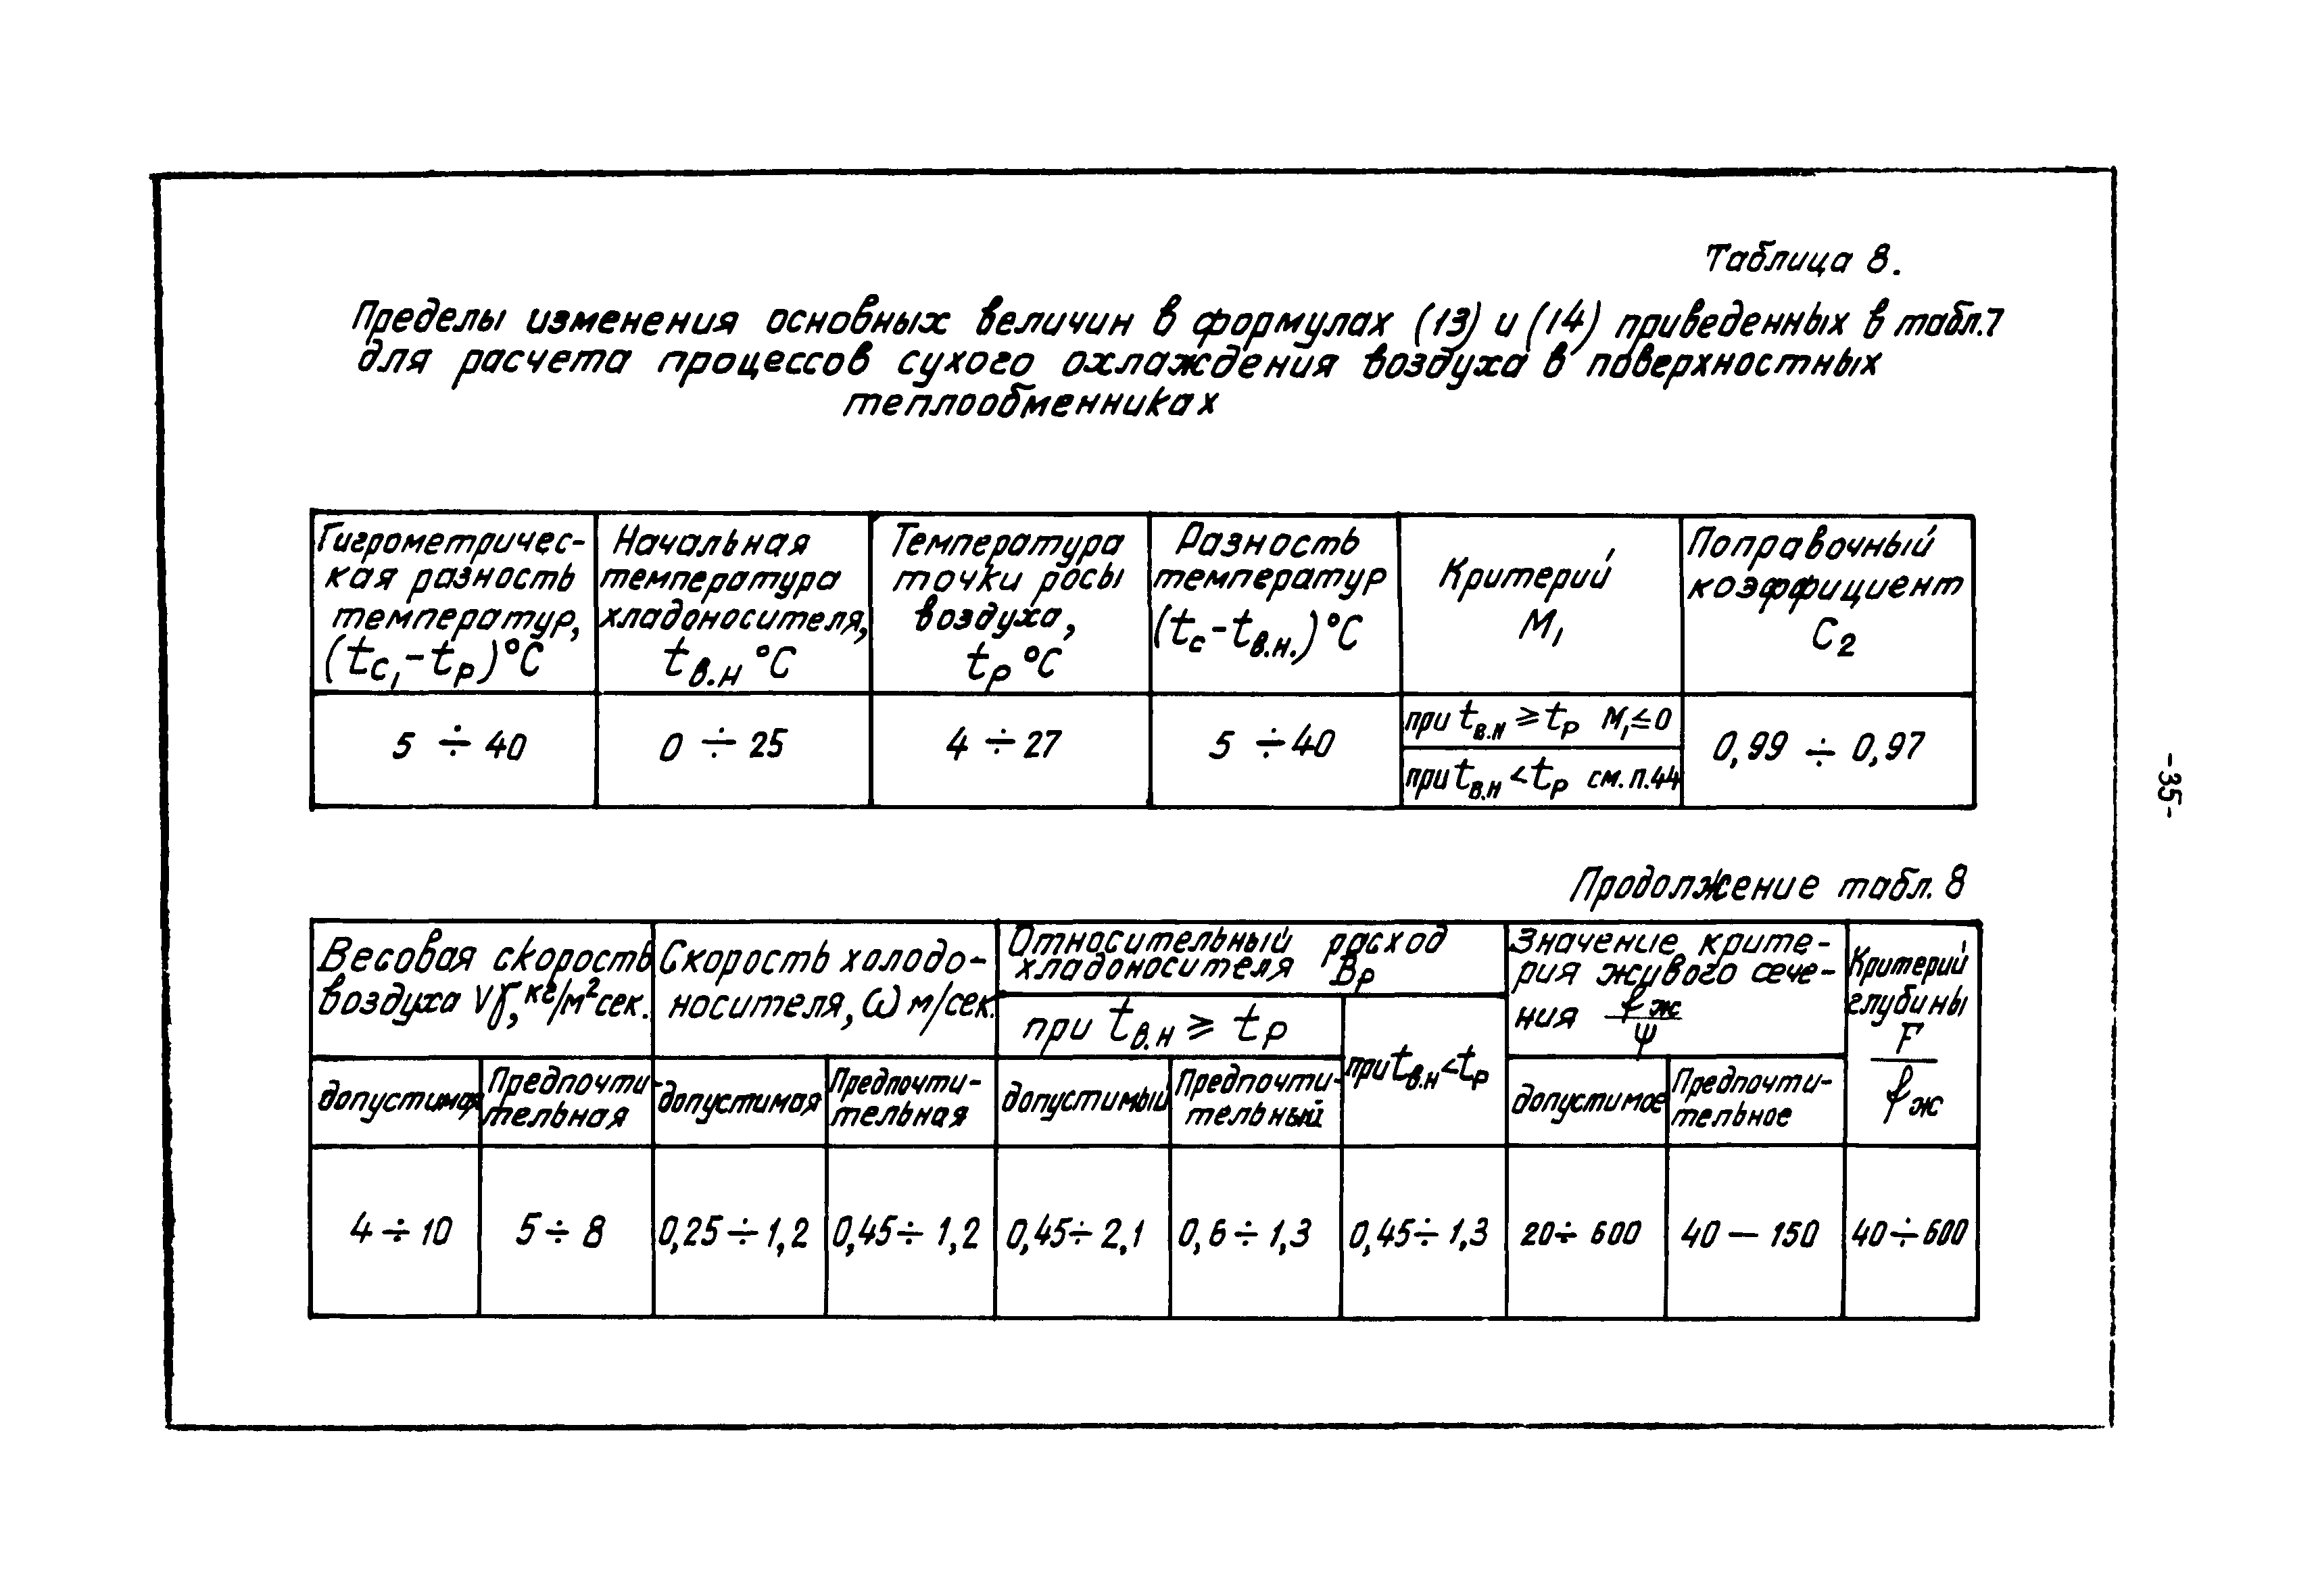 Таблица 8.
Пределы изменения основных величин в формулах (13) и (14) приведенных в табл.7
для расчета процессов сухого охлаждения воздуха в поверхностных
теплообменниках
Гигрометричес-
кая разность
температур,
(tс₁-tр)°С
Начальная
температура
хладоносителя,
tв.н °С
Температура
точки росы
воздуха,
tр °С
Разность
температур
(tс-tв.н.)°С
Критерий
М₁
Поправочный
коэффициент
С₂
5 ÷ 40
0 ÷ 25
4 ÷ 27
5 ÷ 40
при tв.н ≥ tр М₁≤0
при tв.н < tр см.п.44
0,99 ÷ 0,97
-35-
Продолжение табл. 8
Весовая скорость
воздуха vγ, кг/м² сек.
Скорость холодо-
носителя, ω м/сек.
Относительный расход
хладоносителя Вр
при tв.н ≥ tр
при tв.н < tр
Значение крите-
рия живого сече-
ния fж/ψ
Критерий
глубины
F
fж
допустимая
Предпочти-
тельная
допустимая
Предпочти-
тельная
допустимый
Предпочти-
тельный
допустимое
Предпочти-
тельное
4 ÷ 10
5 ÷ 8
0,25 ÷ 1,2
0,45 ÷ 1,2
0,45 ÷ 2,1
0,6 ÷ 1,3
0,45 ÷ 1,3
20 ÷ 600
40 — 150
40 ÷ 600